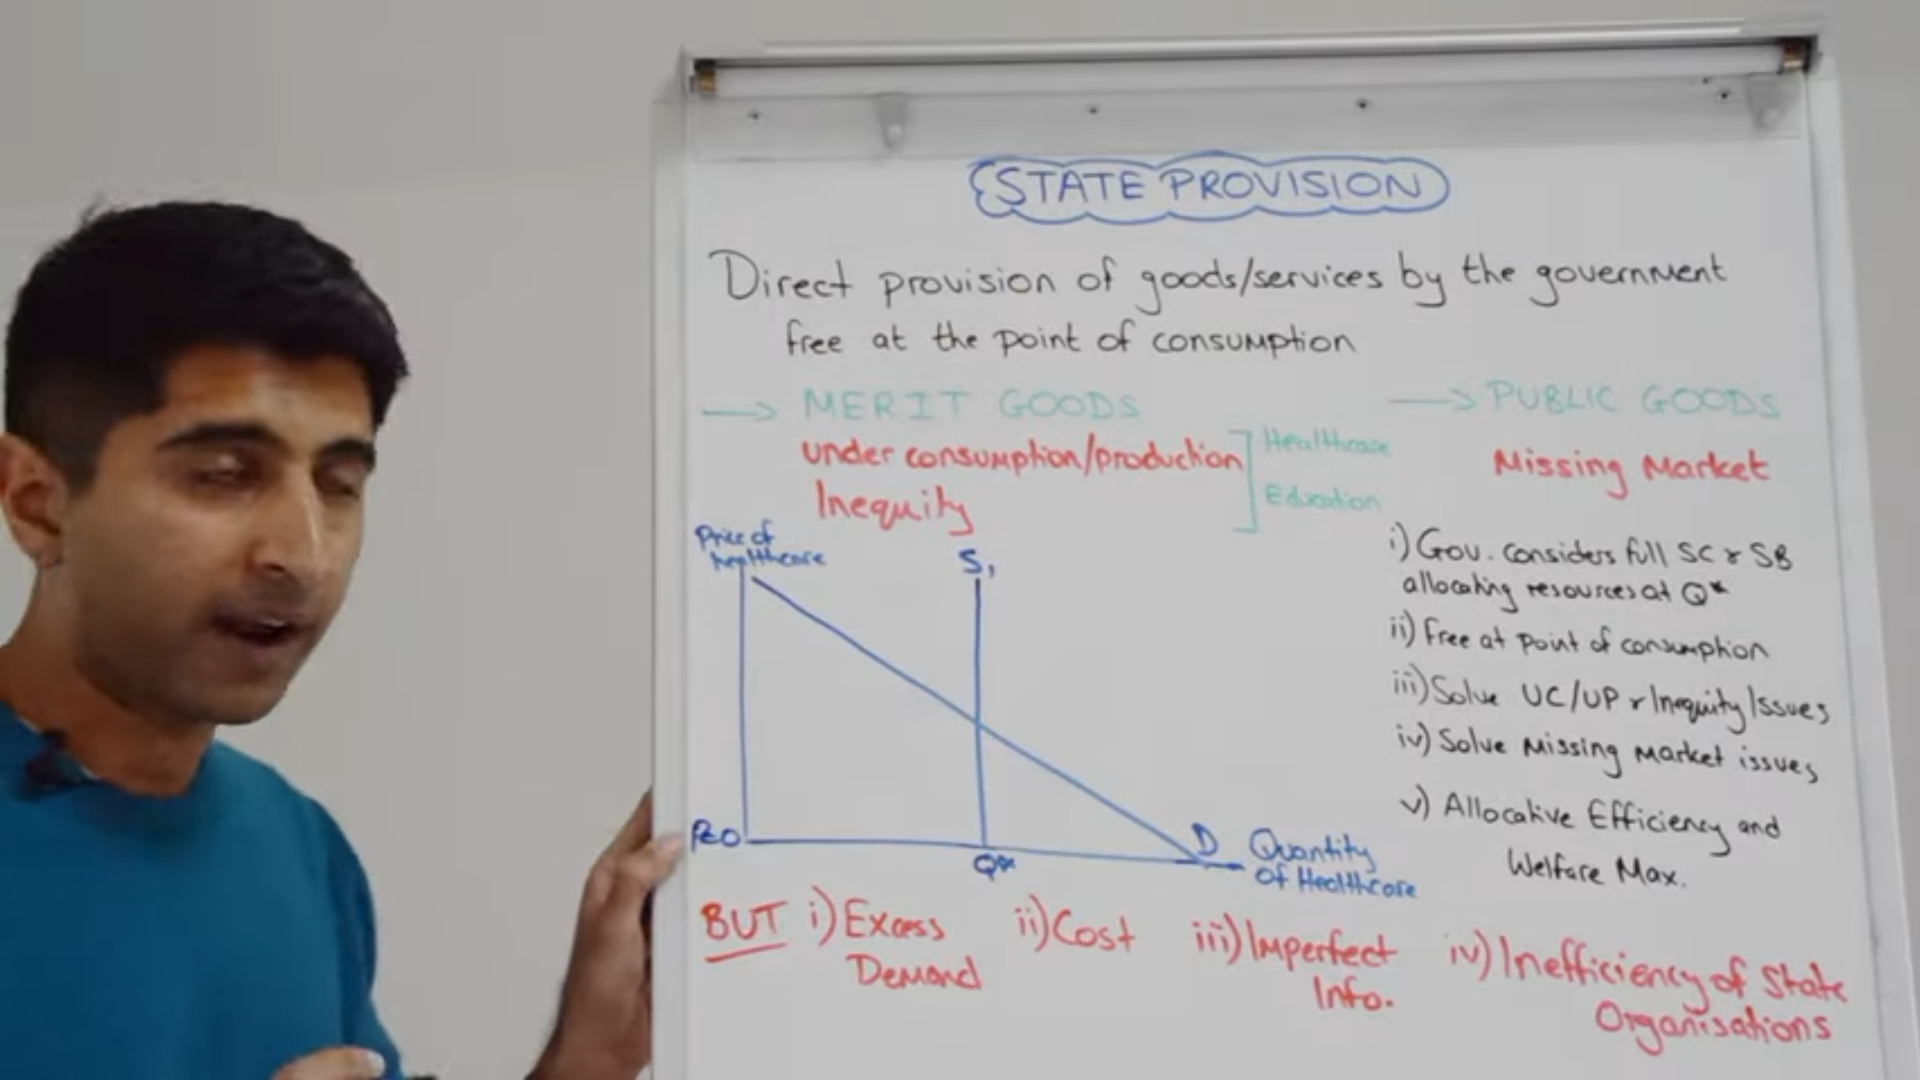 STATE PROVISION
Direct provision of goods/services by the government
free at the point of consumption
→ MERIT GOODS
under consumption/production
Inequity
Healthcare
Education
→ PUBLIC GOODS
Missing Market
i) Gov. considers full SC & SB
allocating resources at Q*
ii) Free at point of consumption
iii) Solve UC/UP & Inequity Issues
iv) Solve Missing Market issues
v) Allocative Efficiency and
Welfare Max.
Price of
healthcare
S1
P=0
Q*
D
Quantity
of Healthcare
BUT i) Excess
Demand
ii) Cost
iii) Imperfect
Info.
iv) Inefficiency of State
Organisations